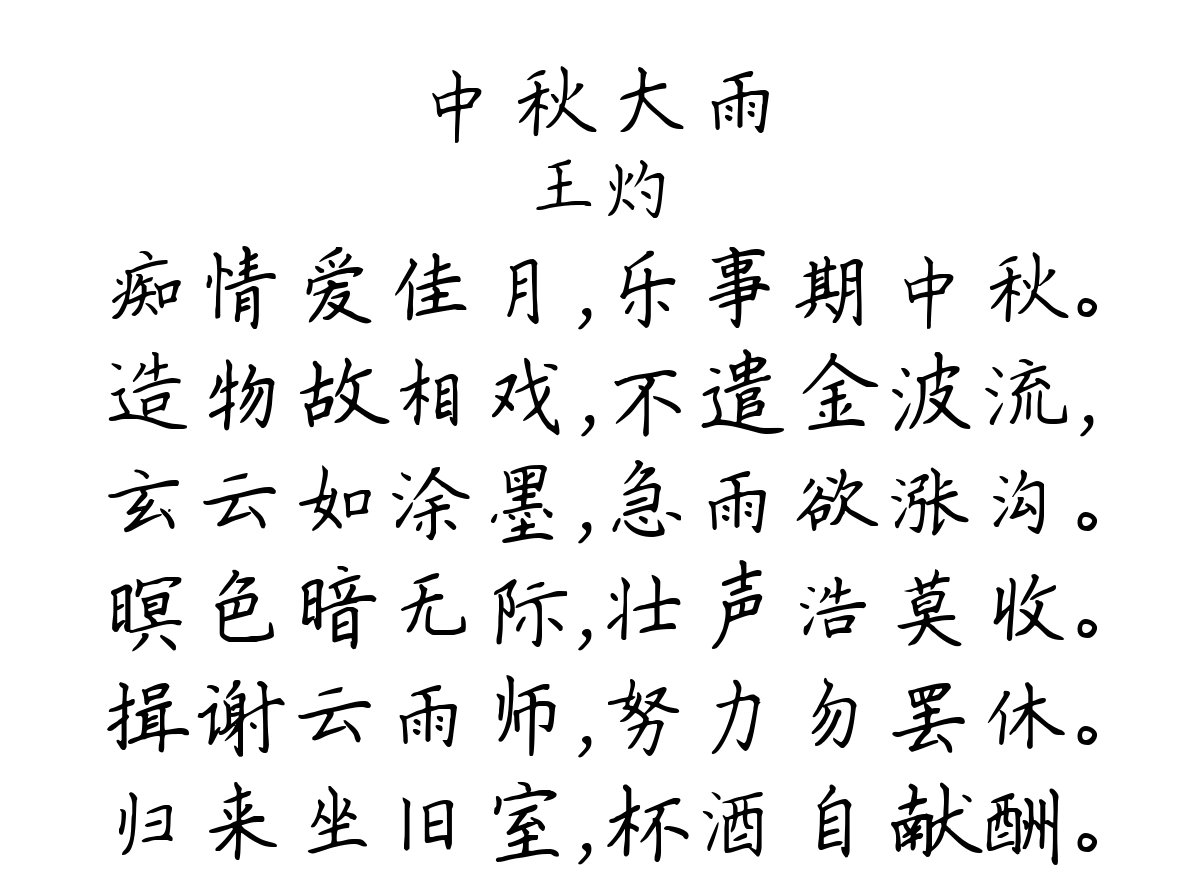 中秋大雨
王灼
痴情爱佳月,乐事期中秋。
造物故相戏,不遣金波流,
玄云如涂墨,急雨欲涨沟。
暝色暗无际,壮声浩莫收。
揖谢云雨师,努力勿罢休。
归来坐旧室,杯酒自献酬。